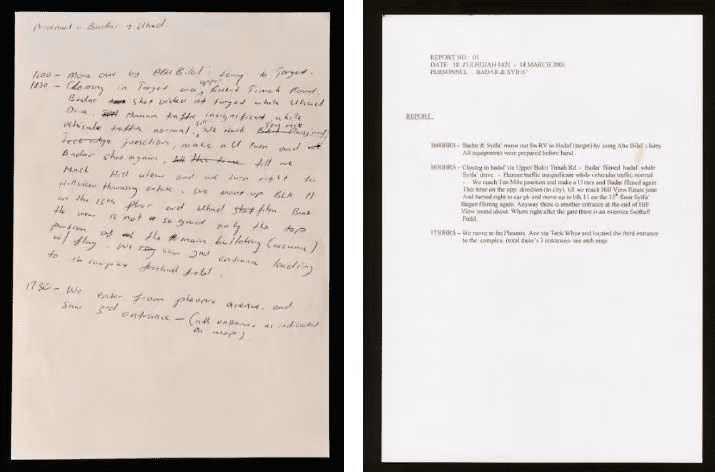 Personnel - Badar & Uhud.
1600 - Move out by Abu Bilal lorry to Target.
1630 - Closing in Target via upper Bukit Timah Road.
Badar shot video of target while Uhud
Drive. Human traffic insignificant while
vehicle traffic normal. We reach
junction, make a U turn and
Badar shot again, till we
reach Hill view and we turn right to
Hillview Housing estate. We move up Blk 11
on the 15th floor and Uhud film But
the view is not so good only the top
portion of the main building (assume)
w/ flag. We saw 2nd entrance leading
to the complex football field.
1730 - We enter from pheonix avenue. and
saw 3rd entrance - (all entrance as indicated
in map)
REPORT NO : 01
DATE : 18 ZULHIJJAH 1421 - 14 MARCH 2001
PERSONNEL : BADAR & SYIFA'
REPORT :
1600HRS - Badar & Syifa' move out fm RV to Hadaf (target) by using Abu Bilal's lorry
All equipments were prepared before hand.
1630HRS - Closing in hadaf via Upper Bukit Timah Rd. - Badar filmed hadaf while
Syifa' drive. - Human traffic insignificant while vehicular traffic normal
- We reach Ten Mile junction and make a U turn and Badar filmed again
This time on the opp. direction (to city), till we reach Hill View Estate junc
And turned right to car pk and move up to blk 11 on the 15th floor Syifa'
Began filming again. Anyway there is another entrance at the end of Hill
View round about. Where right after the gate there is an oversize football
Field.
1738HRS - We move in fm Phoenix Ave via Teck Whye and located the third entrance
to the complex. (total there's 3 entrances- see atch map